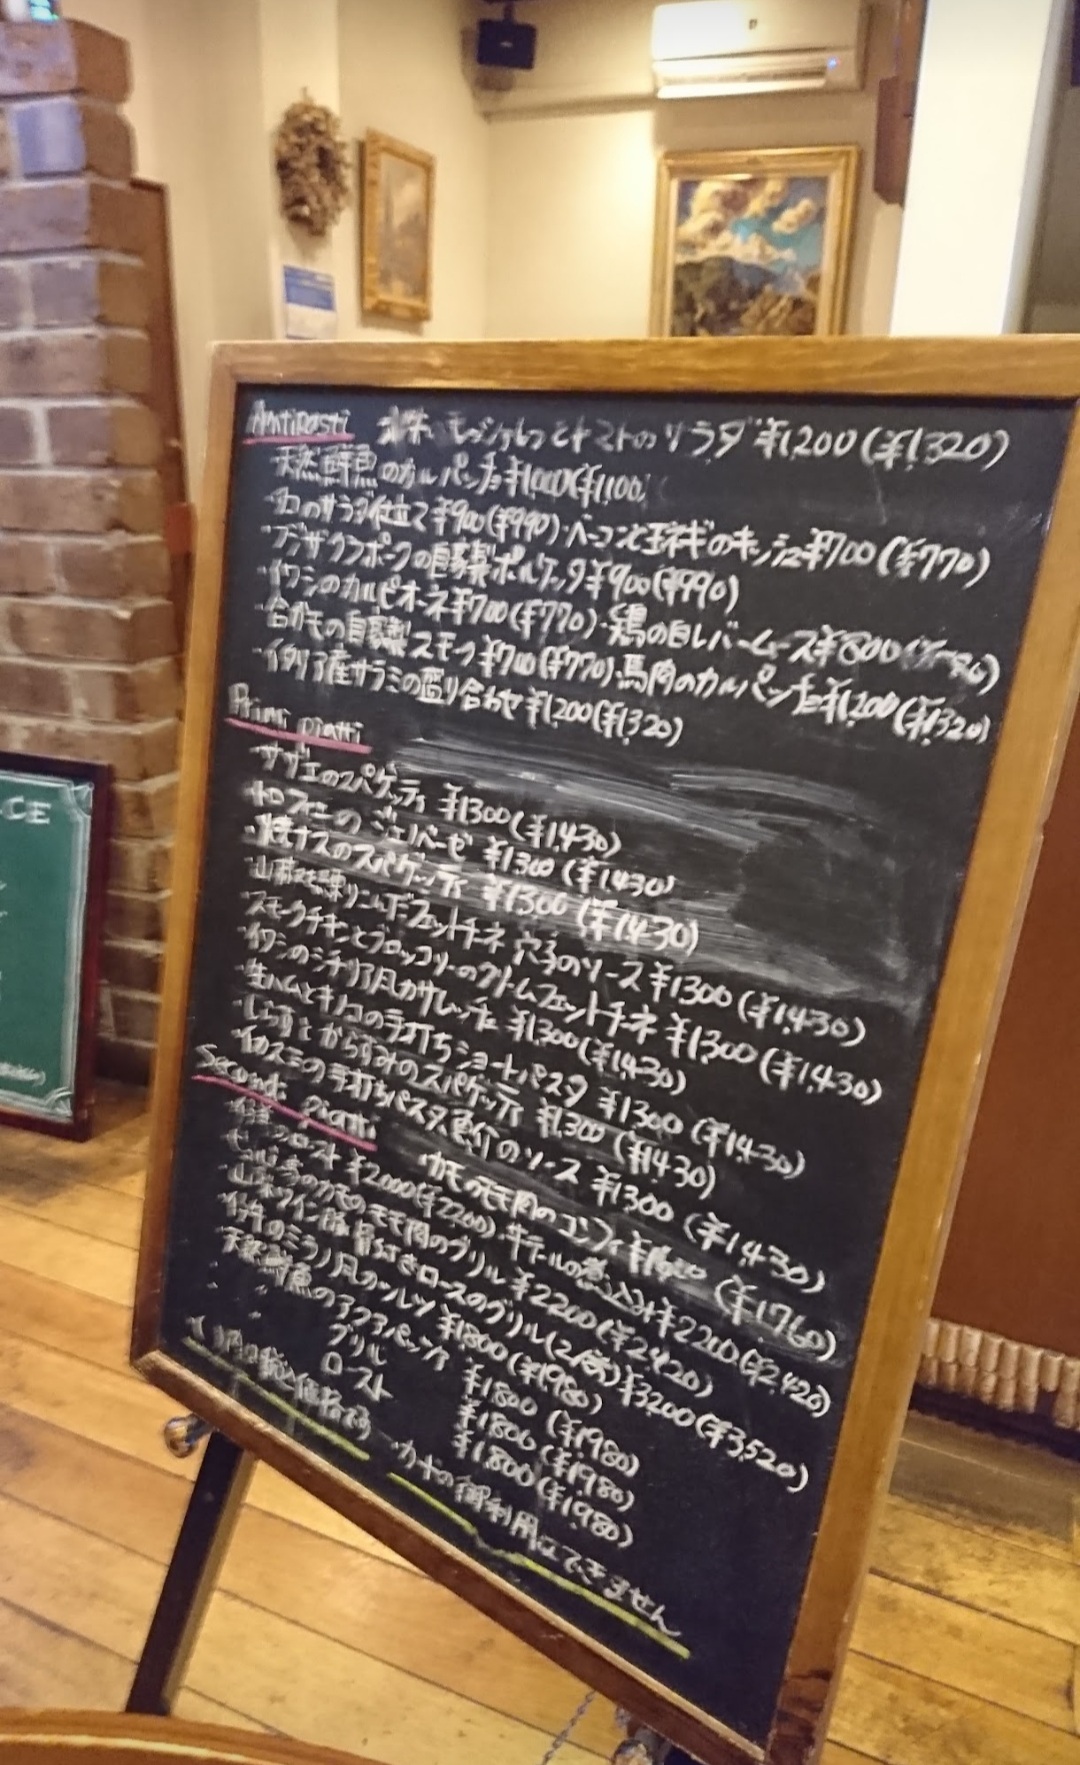 Antipasti 水牛モッツァレラとトマトのサラダ ¥1,200(¥1,320)
天然鮮魚のカルパッチョ¥1,000(¥1,100)
・タコのサラダ仕立て¥900(¥990)・ベーコンと玉ネギのキッシュ¥700(¥770)
・フジザクラポークの自家製ポルケッタ¥900(¥990)
・イワシのカルピオーネ¥700(¥770)・鶏の白レバームース¥800
・合ガモの自家製スモーク¥700(¥770)・馬肉のカルパッチョ¥1,200(¥1,320)
・イタリア産サラミの盛り合わせ¥1,200(¥1,320)
Primi piatti
・サザエのスパゲッティ ¥1300(¥1,430)
・トロフィエのジェノベーゼ ¥1300(¥1430)
・焼ナスのスパゲッティ ¥1300(¥1430)
練りこみフェットチネ 穴子のソース ¥1300(¥1,430)
・スモークチキンとブロッコリーのクリームフェットチネ ¥1300(¥1,430)
・イワシのシチリア風カサレッチェ ¥1,300(¥1,430)
・生ハムとキノコの手打ちショートパスタ ¥1300(¥1430)
・しらすとからすみのスパゲッティ ¥1,300(¥1430)
・イカスミの手打ちパスタ魚介のソース ¥1300(¥1,430)
Secondi piatti ・カモのモモ肉のコンフィ (¥1760)
ロースト ¥2000(¥2200)・牛テールの煮込み¥2200(¥2,420)
カモのモモ肉のグリル ¥2200(¥2,420)
骨付きロースのグリル ¥3200(¥3,520)
・仔牛のミラノ風カツレツ ¥1800(¥1980)
天然鮮魚のアクアパッツァ ¥1,800(¥1980)
・ 〃 グリル ¥1,800(¥1,980)
・ 〃 ロースト ¥1,800(¥1,980)
( )内は税込価格 ・カードの御利用はできません